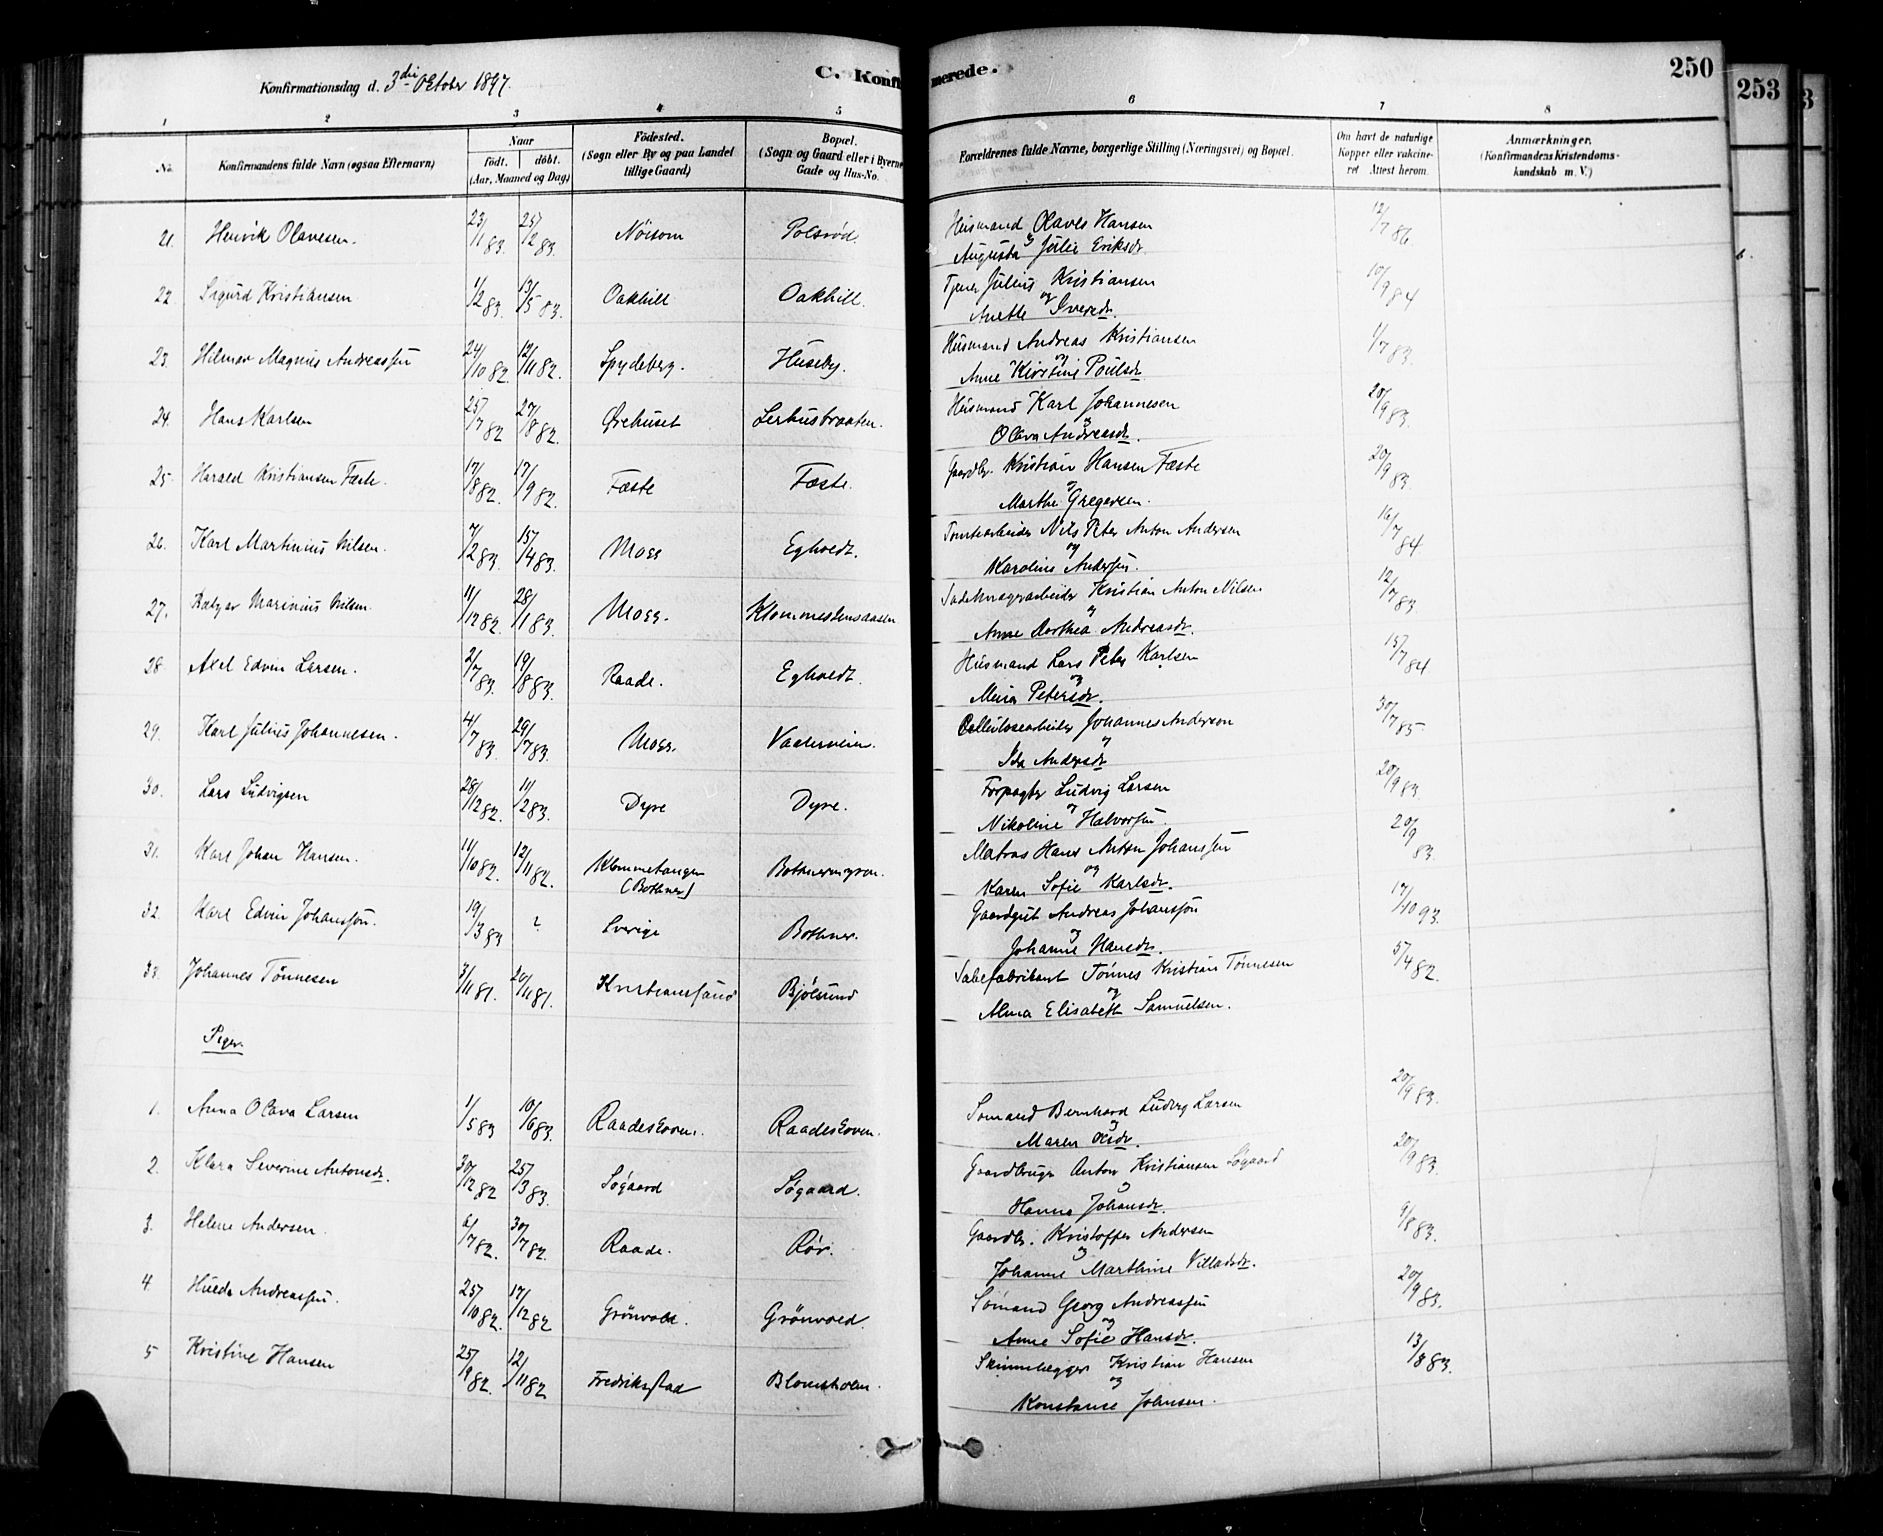 Konfirmationsdag d. 3die Oktober 1897.
C. Konfirmerede.
250
253
3
1 2 3 4 5 6 7 8
No. Konfirmandens fulde Navn (ogsaa Efternavn) Naar födt. döbt. (Aar, Maaned og Dag) Födested. (Sogn eller By og paa Landet tillige Gaard) Bopæl. (Sogn og Gaard eller i Byerne Gade og Hus-No. Forældrenes fulde Navne, borgerlige Stilling (Næringsvei) og Bopæl. Om havt de naturlige Kopper eller vakcineret Attest herom. Anmærkninger. (Konfirmandens Kristendomskundskab m. V.)
21. Henrik Olavesen. 23/1 83. 25/2 83. Nöisom Polsröd. Husmand Olaves Hansen 12/7 86.
og Augusta Julie Eriksdr.
22. Sigurd Kristiansen 1/2 83. 13/5 83. Oakhill Oakhill. Tjener Julius Kristiansen 10/9 84
og Anette Iversdr.
23. Hilmar Magnus Andreassen 24/10 82. 12/11 82. Spydeberg. Huseby. Husmand Andreas Kristiansen 1/7 83.
og Anne Kirstine Poulsdr.
24. Hans Karlsen 25/7 82 27/8 82. Ørehuset Lerhusbraaten. Husmand Karl Johannesen 20/9 83.
og Olava Andreasdr.
25. Harald Kristiansen Fæste. 17/8 82. 17/9 82. Fæste Fæste. Gaardbr. Kristian Hansen Fæste 20/9 83.
og Marthe Gregersen.
26. Karl Martinius Nilsen. 7/2 83. 15/4 83. Moss Egholdt. Tomtearbeider Nils Peter Anton Andersen 16/7 84.
og Karoline Andersen.
27. Marinius Nilsen. 11/12 82. 28/1 83. Moss. Klommestensaasen Kristian Anton Nilsen 12/7 83.
og Anne Dorthea Andreasdr.
28. Axel Edvin Larsen. 2/7 83. 19/8 83. Raade. Egholdt. Husmand Lars Peter Karlsen 15/7 84
og Mina Petersdr.
29. Karl Julius Johannesen. 4/7 83. 29/7 83. Moss. Vaalerveien. Cellulosearbeider Johannes Anderson 30/7 85
og Ida Andersdr.
30. Lars Ludvigsen 28/12 82. 11/2 83. Dyre Dyre. Forpagter Ludvig Larsen 20/9 83.
og Nikoline Halvorsen.
31. Karl Johan Hansen. 11/10 82. 12/11 82. Klommetangen (Bothner) Bothnermyren. Matros Hans Anton Johansen 20/9 83.
og Karen Sofie Karlsdr.
32. Karl Edvin Johansson. 19/3 83 ? Sverige Bothner. Gaardgut Andreas Johansson 17/10 93.
og Johanne Hansdr.
33. Johannes Tönnesen 3/11 81. 20/11 81. Kristianssund Bjölsund Sæbefabrikant Tönnes Kristian Tönnesen 5/4 82.
og Alma Elisabeth Samuelsen.
Piger.
1. Anna Olava Larsen 1/5 83 10/6 83. Raadeskoven. Raadeskoven. Sömand Bernhard Ludvig Larsen 20/9 83.
og Maren Olsdr.
2. Klara Severine Antonsdr. 30/12 82 25/3 83. Søgaard Søgaard. Gaardbruger Anton Kristiansen Søgaard 20/9 83.
og Hanna Johansdr.
3. Helene Andersen. 6/7 82. 30/7 82. Raade. Rör. Gaardbr. Kristoffer Andersen 9/8 83.
og Johanne Marthine Villadsdr.
4 Hulda Andreassen. 25/10 82. 17/12 82 Grönvold. Grönvold. Sömand Georg Andreassen 20/9 83.
og Anne Sofie Hansdr.
5 Kristine Hansen 25/9 82. 12/11 82 Fredriksstad Blomsholm. Skinnelægger Kristian Hansen 13/8 83.
og Konstanse Johnsen.